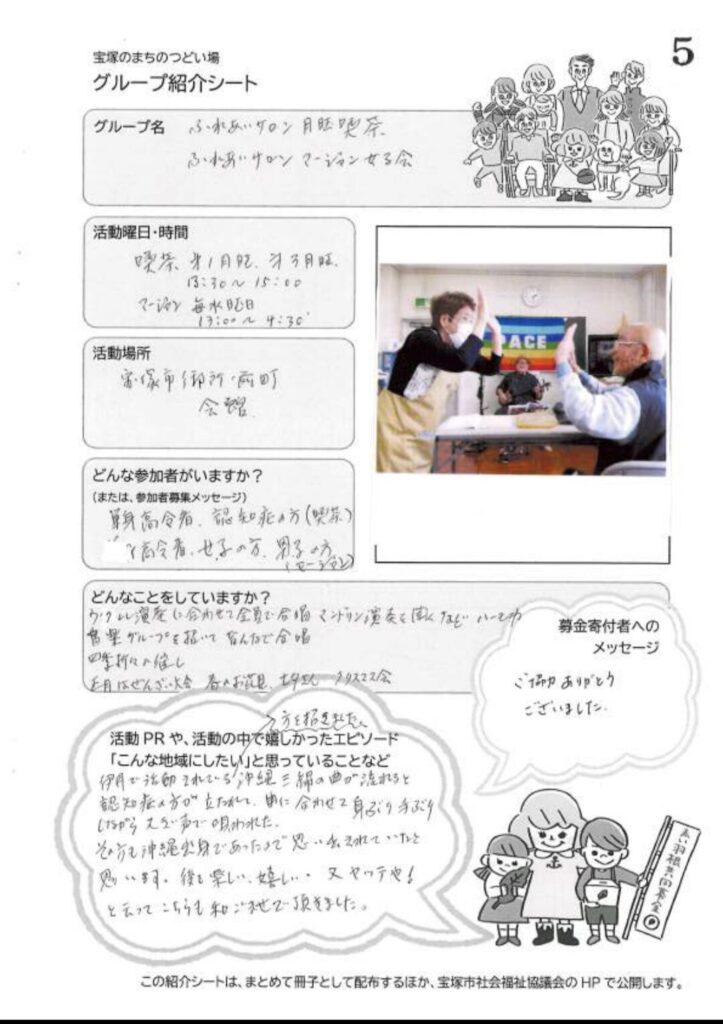 5
宝塚のまちのつどい場
グループ紹介シート
グループ名
ふれあいサロン 月曜喫茶
ふれあいサロン マージャン女子会
活動曜日・時間
喫茶 第1月曜、第3月曜、
13:30～15:00
マージャン 毎水曜日
13:00～4:30
活動場所
宝塚市御所の前町
会館
PEACE
どんな参加者がいますか？
（または、参加者募集メッセージ）
単身高令者、認知症の方(喫茶)
高令者、女子の方、男子の方
(マージャン)
どんなことをしていますか？
ウクレレ演奏に合わせて全員で合唱 マンドリン演奏を聞くなど ハーモニカ
音楽グループを招いて みんなで合唱
四季折々の催し
正月はぜんざい大会 春のお花見、七夕さん クリスマス会
募金寄付者への
メッセージ
ご協力ありがとう
ございました。
方を招きました。
活動PRや、活動の中で嬉しかったエピソード
「こんな地域にしたい」と思っていることなど
伊丹で活動されている沖縄三線の曲が流れると
認知症の方が立たれて、曲に合わせて身ぶり手ぶり
しながら大きい声で唄われた。
その方も沖縄出身であったので思い出されていたと
思います。 楽しい、嬉しい、又ヤッテや!
と云ってこちらも 頂きました。
赤い羽根共同募金
この紹介シートは、まとめて冊子として配布するほか、宝塚市社会福祉協議会のHPで公開します。